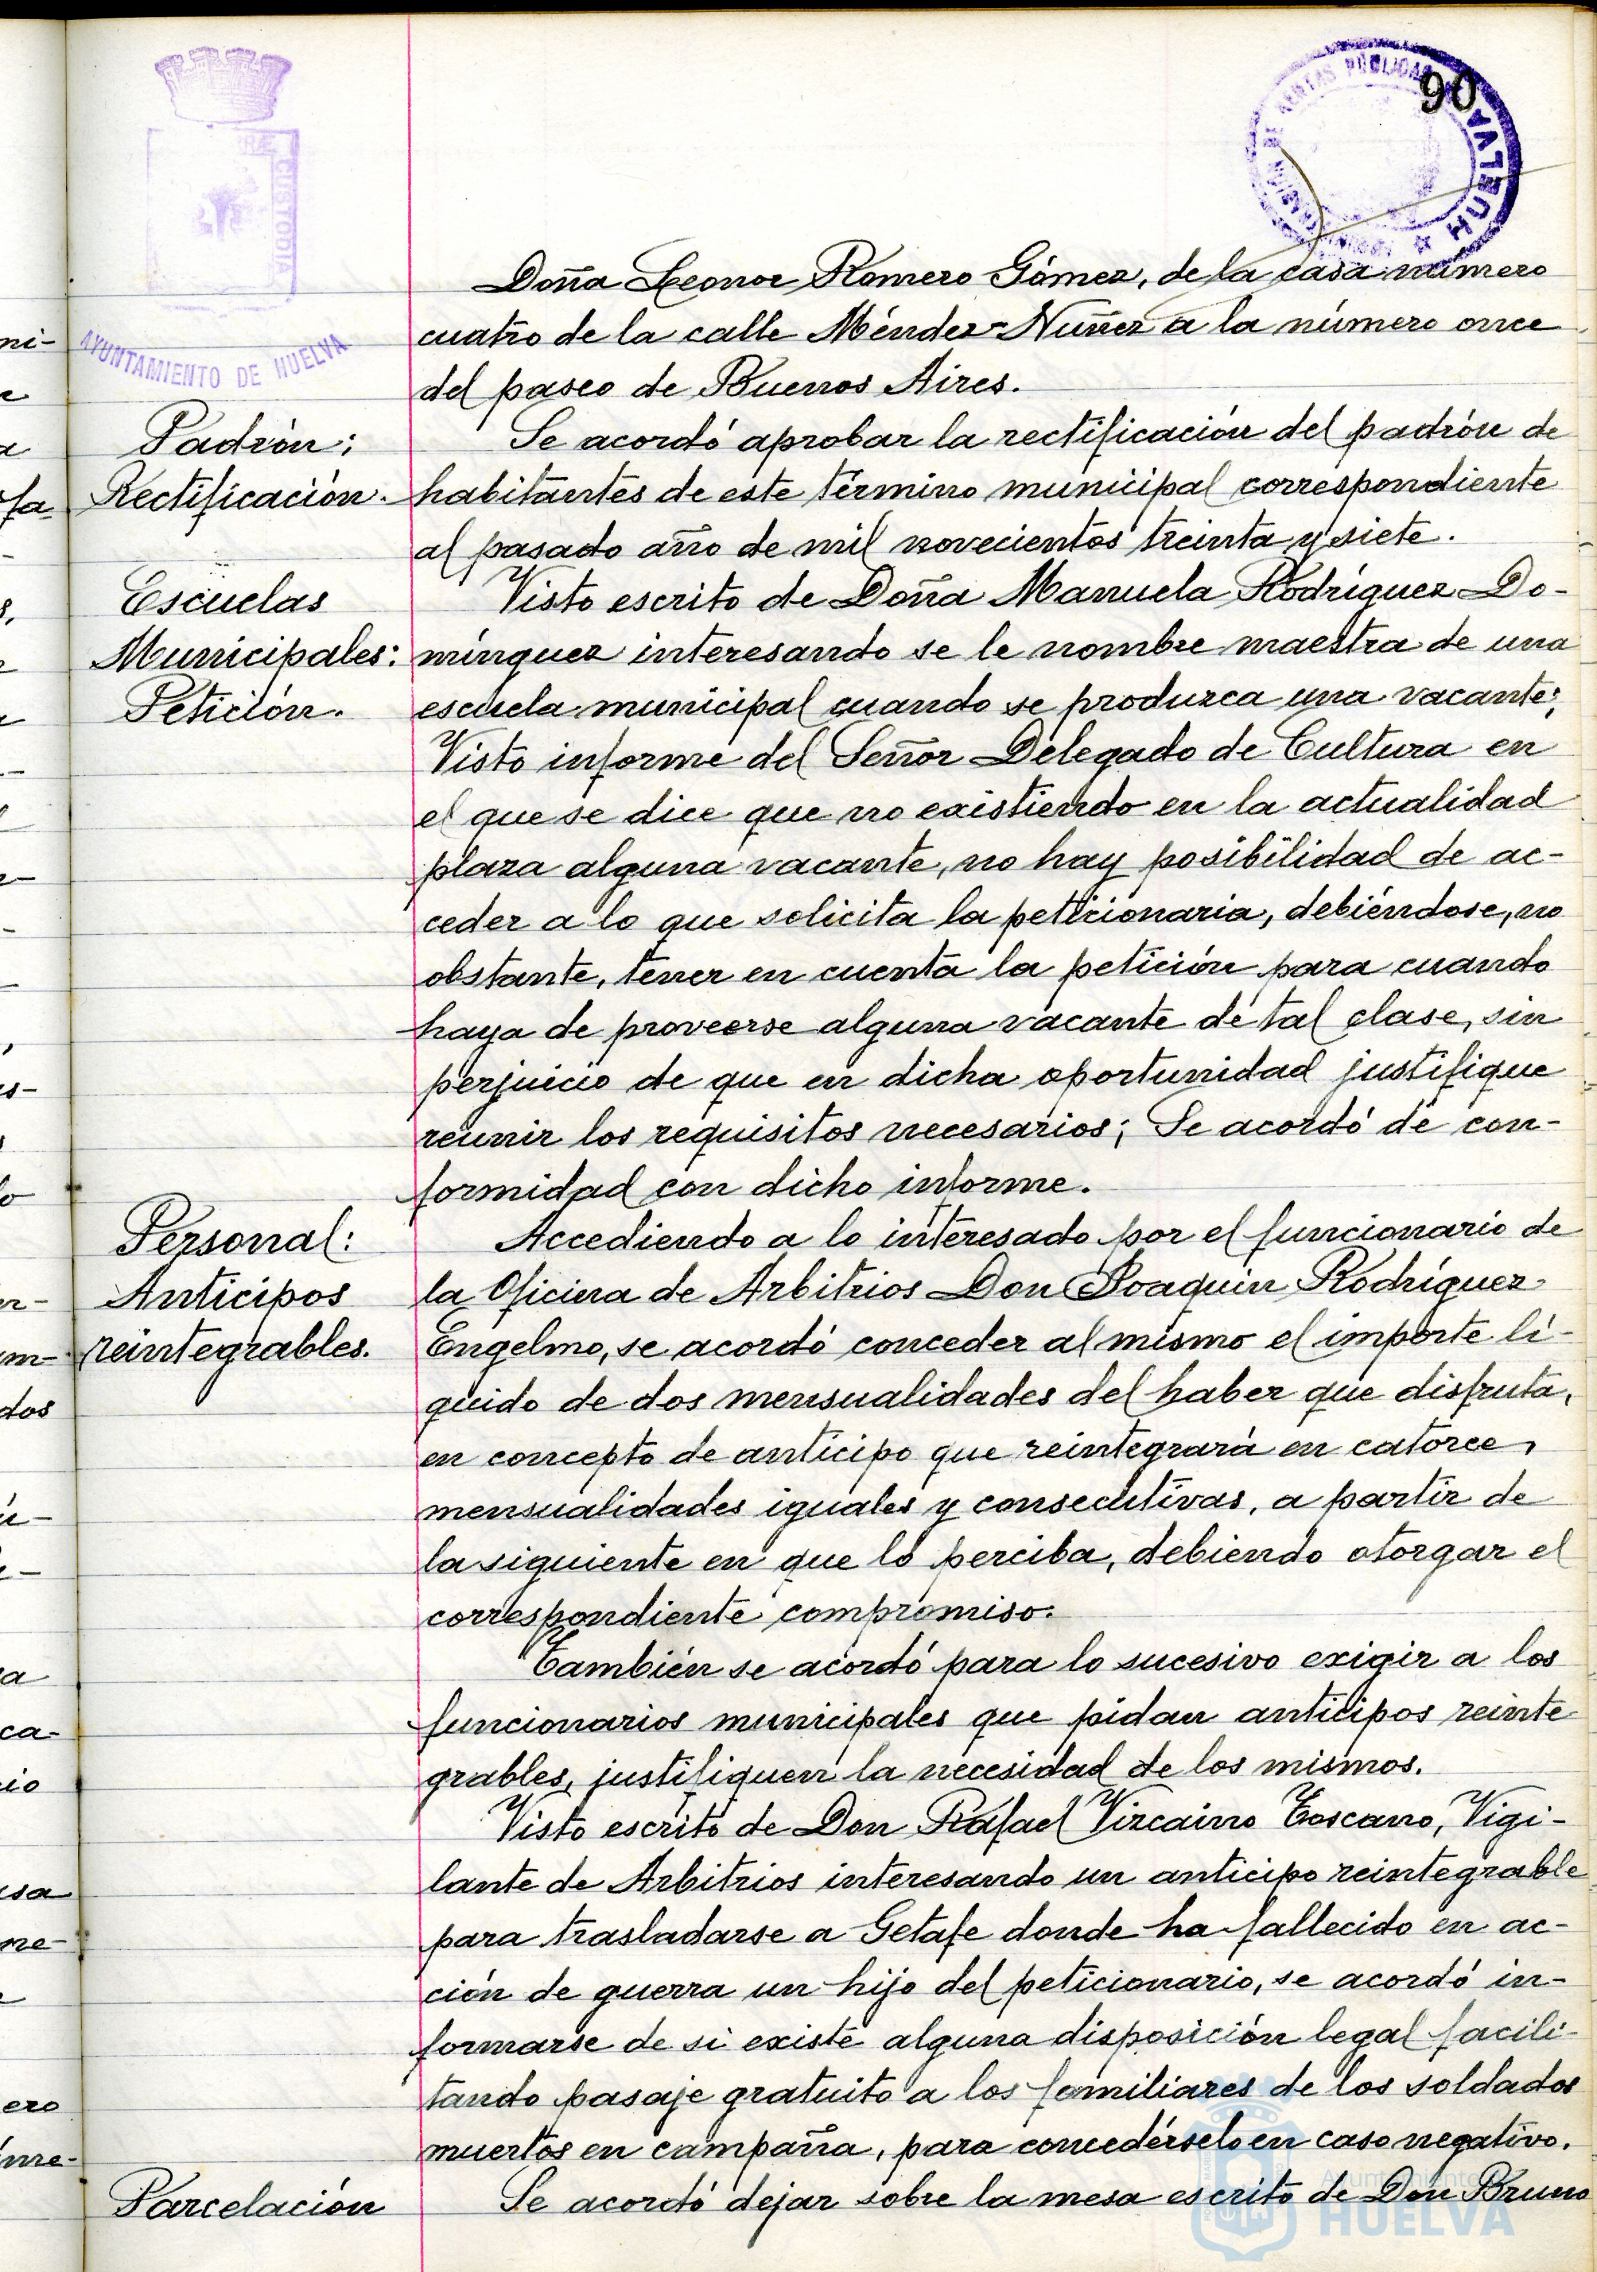 90
HUELVA
AYUNTAMIENTO DE HUELVA
CUSTODIA
Doña Leonor Romero Gómez, de la casa número
cuatro de la calle Méndez Nuñez a la número once
del paseo de Buenos Aires.
Padrón:
Rectificación.
Se acordó aprobar la rectificación del padrón de
habitantes de este término municipal correspondiente
al pasado año de mil novecientos treinta y siete.
Escuelas
Municipales:
Petición.
Visto escrito de Doña Manuela Rodríguez Do-
mínguez interesando se le nombre maestra de una
escuela municipal cuando se produzca una vacante;
Visto informe del Señor Delegado de Cultura en
el que se dice que no existiendo en la actualidad
plaza alguna vacante, no hay posibilidad de ac-
ceder a lo que solicita la peticionaria, debiéndose, no
obstante, tener en cuenta la petición para cuando
haya de proveerse alguna vacante de tal clase, sin
perjuicio de que en dicha oportunidad justifique
reunir los requisitos necesarios; Se acordó de con-
formidad con dicho informe.
Personal:
Anticipos
reintegrables.
Accediendo a lo interesado por el funcionario de
la Oficina de Arbitrios Don Joaquín Rodríguez
Engelmo, se acordó conceder al mismo el importe lí-
quido de dos mensualidades del haber que disfruta,
en concepto de anticipo que reintegrará en catorce
mensualidades iguales y consecutivas, a partir de
la siguiente en que lo perciba, debiendo otorgar el
correspondiente compromiso.
También se acordó para lo sucesivo exigir a los
funcionarios municipales que pidan anticipos reinte
grables, justifiquen la necesidad de los mismos.
Visto escrito de Don Rafael Vizcaino Toscano, Vigi-
lante de Arbitrios interesando un anticipo reintegrable
para trasladarse a Getafe donde ha fallecido en ac-
ción de guerra un hijo del peticionario, se acordó in-
formarse de si existe alguna disposición legal facili-
tando pasaje gratuito a los familiares de los soldados
muertos en campaña, para concedérselo en caso negativo.
Parcelación
Se acordó dejar sobre la mesa escrito de Don Bruno
Ayuntamiento de
HUELVA